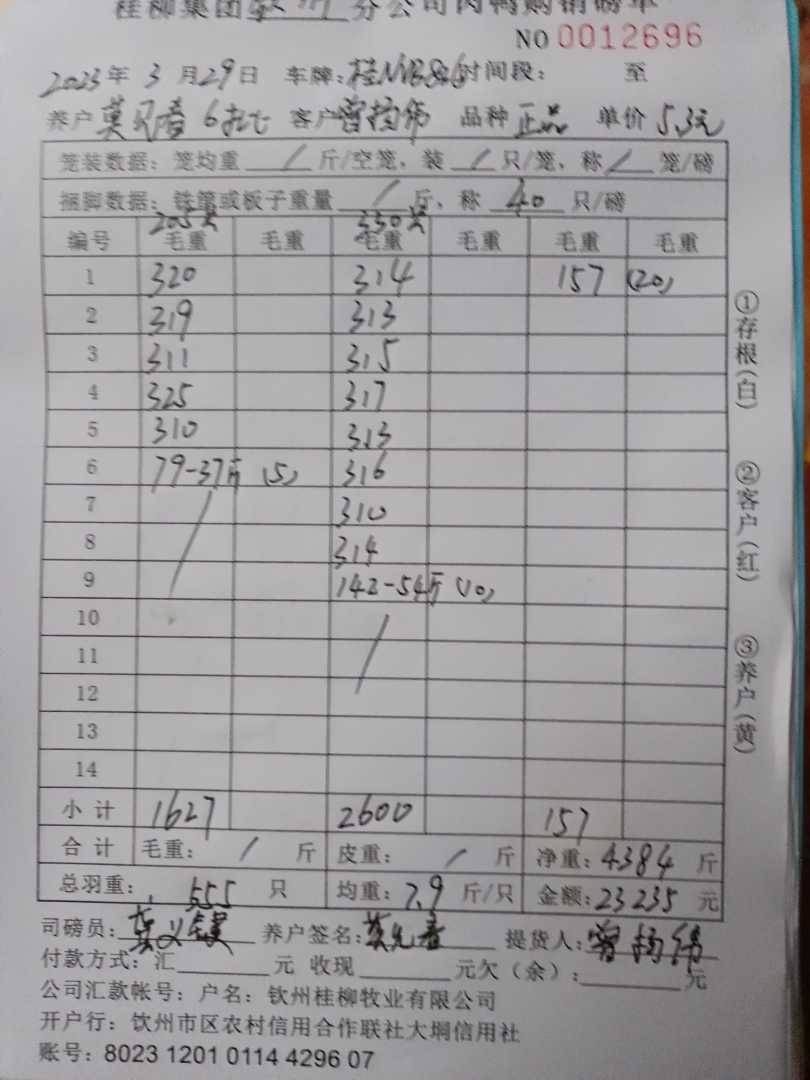 桂柳集团钦州分公司肉鸭购销磅单
NO 0012696
2023年3月29日 车牌:桂N 时间段: 至
养户 6批七 客户曾扬伟 品种正品 单价5.3元
笼装数据:笼均重 / 斤/空笼、装 / 只/笼、称 / 笼/磅
捆脚数据:铁笼或板子重量 / 斤、称 40 只/磅
205只 350只
编号 毛重 毛重 毛重 毛重 毛重 毛重
1 320 314 157 (20)
2 319 313
3 311 315
4 325 317
5 310 313
6 79-37斤 (5) 316
7 310
8 314
9 142-54斤 (10)
10
11
12
13
14
小计 1627 2600 157
合计 毛重: / 斤 皮重: / 斤 净重:4384斤
总羽重: 555 只 均重:7.9斤/只 金额:23235元
司磅员: 养户签名: 提货人:曾扬伟
付款方式:汇 元 收现 元欠(余): 元
公司汇款帐号:户名:钦州桂柳牧业有限公司
开户行:钦州市区农村信用合作联社大垌信用社
账号:8023 1201 0114 4296 07
①存根(白)
②客户(红)
③养户(黄)